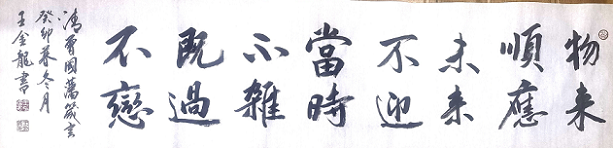 物来
順應
未来
不迎
當時
不雜
既過
不戀
清曾國藩箴言
癸卯秊冬月
王金龍書